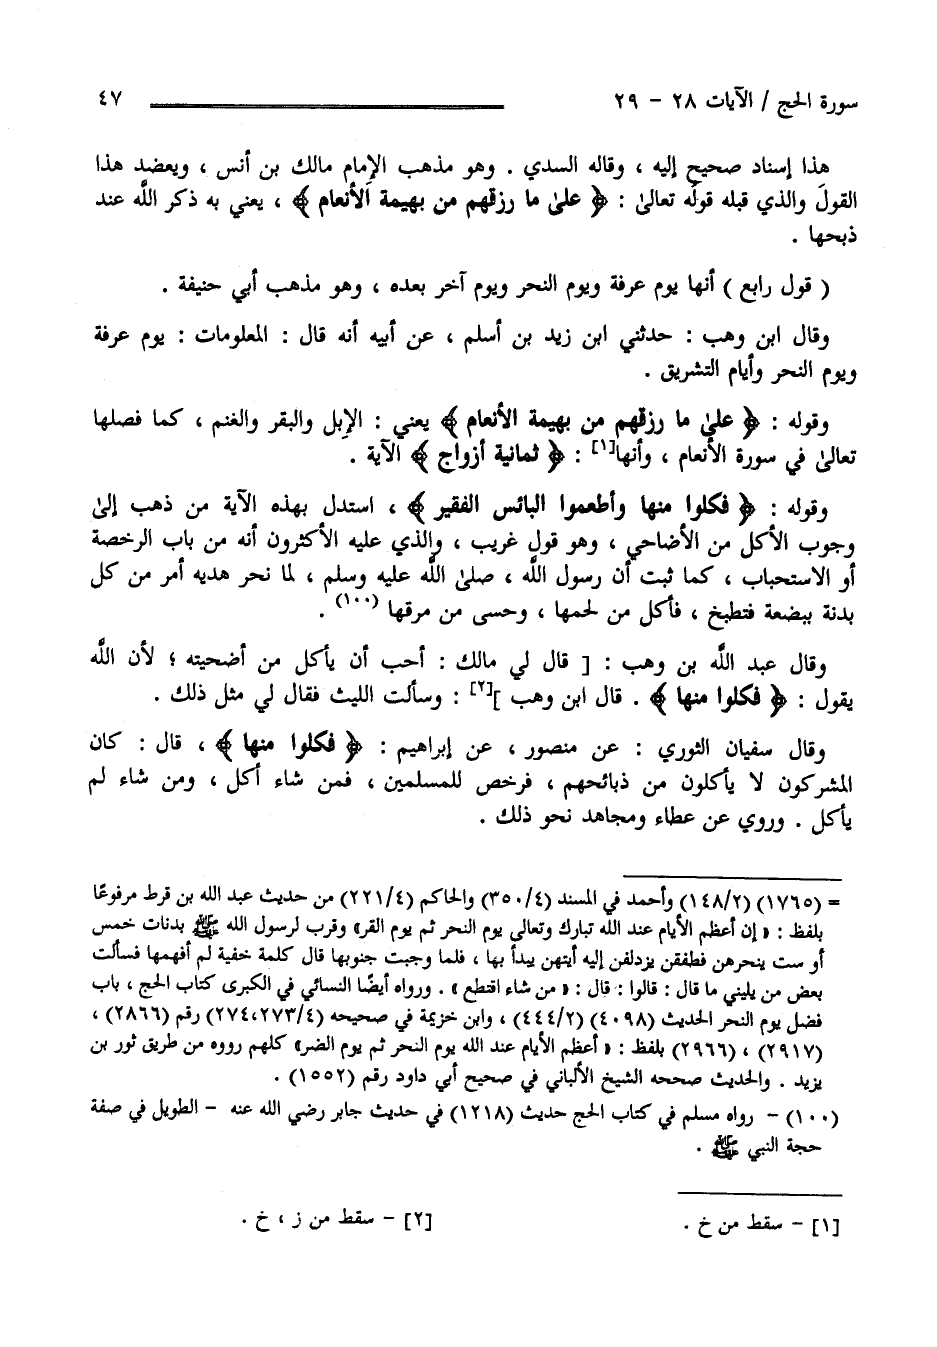 سورة الحج / الآيات ٢٨ - ٢٩ ٤٧
هذا إسناد صحيح إليه ، وقاله السدي . وهو مذهب الإمام مالك بن أنس ، ويعضد هذا
القولَ والذي قبله قولُه تعالىٰ : ﴿ علىٰ ما رزقهم من بهيمة الأنعام ﴾ ، يعني به ذكر اللَّه عند
ذبحها .
( قول رابع ) أنها يوم عرفة ويوم النحر ويوم آخر بعده ، وهو مذهب أبي حنيفة .
وقال ابن وهب : حدثني ابن زيد بن أسلم ، عن أبيه أنه قال : المعلومات : يوم عرفة
ويوم النحر وأيام التشريق .
وقوله : ﴿ علىٰ ما رزقهم من بهيمة الأنعام ﴾ يعني : الإبل والبقر والغنم ، كما فصلها
تعالىٰ في سورة الأنعام ، وأنها[١] : ﴿ ثمانية أزواج ﴾ الآية .
وقوله : ﴿ فكلوا منها وأطعموا البائس الفقير ﴾ ، استدل بهذه الآية من ذهب إلىٰ
وجوب الأكل من الأضاحي ، وهو قول غريب ، والذي عليه الأكثرون أنه من باب الرخصة
أو الاستحباب ، كما ثبت أن رسول اللَّه ، صلىٰ اللَّه عليه وسلم ، لما نحر هديه أمر من كل
بدنة ببضعة فتطبخ ، فأكل من لحمها ، وحسى من مرقها (١٠٠) .
وقال عبد اللَّه بن وهب : [ قال لي مالك : أحب أن يأكل من أضحيته ؛ لأن اللَّه
يقول : ﴿ فكلوا منها ﴾ . قال ابن وهب ][٢] : وسألت الليث فقال لي مثل ذلك .
وقال سفيان الثوري : عن منصور ، عن إبراهيم : ﴿ فكلوا منها ﴾ ، قال : كان
المشركون لا يأكلون من ذبائحهم ، فرخص للمسلمين ، فمن شاء أكل ، ومن شاء لم
يأكل . وروي عن عطاء ومجاهد نحو ذلك .
= (١٧٦٥) (١٤٨/٢) وأحمد في المسند (٣٥٠/٤) والحاكم (٢٢١/٤) من حديث عبد الله بن قرط مرفوعًا
بلفظ : « إن أعظم الأيام عند الله تبارك وتعالى يوم النحر ثم يوم القر» وقرب لرسول الله ﷺ بدنات خمس
أو ست ينحرهن فطفقن يزدلفن إليه أيتهن يبدأ بها ، فلما وجبت جنوبها قال كلمة خفية لم أفهمها فسألت
بعض من يليني ما قال : قالوا : قال : « من شاء اقتطع » . ورواه أيضًا النسائي في الكبرى كتاب الحج ، باب
فضل يوم النحر الحديث (٤٠٩٨) (٤٤٤/٢) ، وابن خزيمة في صحيحه (٢٧٤،٢٧٣/٤) رقم (٢٨٦٦) ،
(٢٩١٧) ، (٢٩٦٦) بلفظ : « أعظم الأيام عند الله يوم النحر ثم يوم الضر» كلهم رووه من طريق ثور بن
يزيد . والحديث صححه الشيخ الألباني في صحيح أبي داود رقم (١٥٥٢) .
(١٠٠) - رواه مسلم في كتاب الحج حديث (١٢١٨) في حديث جابر رضي الله عنه - الطويل في صفة
حجة النبي ﷺ .
[١] - سقط من خ . [٢] - سقط من ز ، خ .